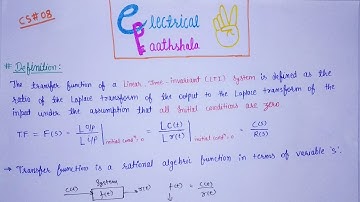 CS#08
Electrical
Paathshala
# Definition:
The transfer function of a Linear Time-invariant (LTI) system is defined as the
ratio of the Laplace transform of the output to the Laplace transform of the
input under the assumption that all initial conditions are zero.
TF = F(s) = L O/P / L i/P | initial condⁿ = 0 = L C(t) / L r(t) | initial condⁿ = 0 = C(s) / R(s)
→ Transfer function is a rational algebraic function in terms of variable 's'.
System
C(t) → f(t) → r(t) f(t) = C(t) / r(t)